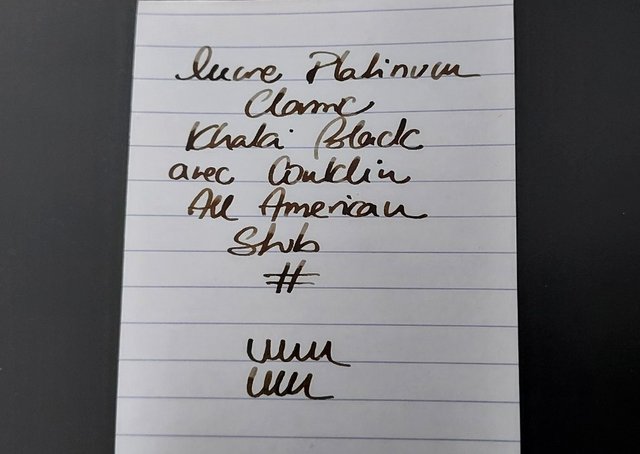 Encre Platinum
Classic
Khaki Black
avec Conklin
All American
Stub
#